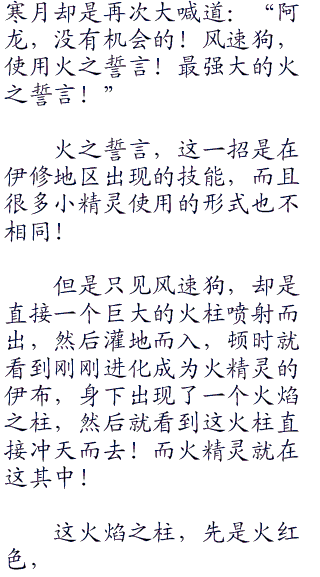 寒月却是再次大喊道：“阿
龙，没有机会的！风速狗，
使用火之誓言！最强大的火
之誓言！”
火之誓言，这一招是在
伊修地区出现的技能，而且
很多小精灵使用的形式也不
相同！
但是只见风速狗，却是
直接一个巨大的火柱喷射而
出，然后灌地而入，顿时就
看到刚刚进化成为火精灵的
伊布，身下出现了一个火焰
之柱，然后就看到这火柱直
接冲天而去！而火精灵就在
这其中！
这火焰之柱，先是火红
色，